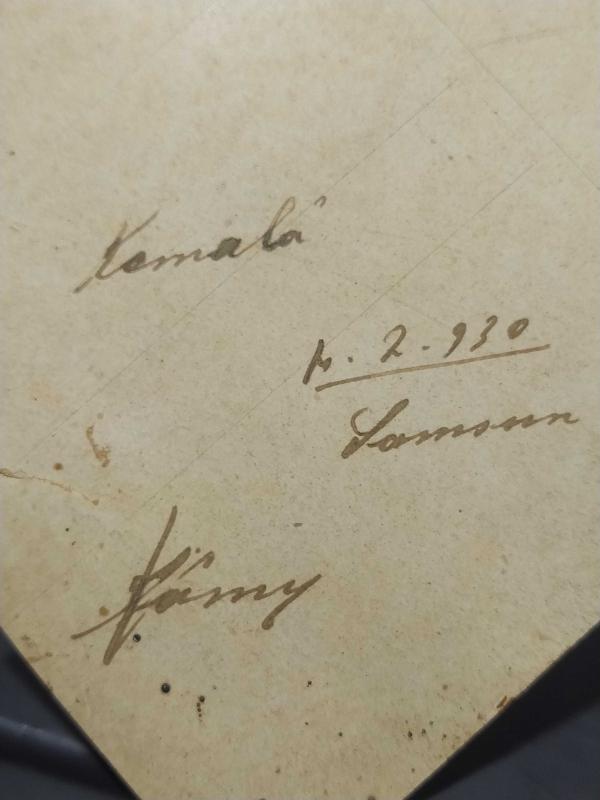 Kemalâ
2.930
Samsun
Kâmy